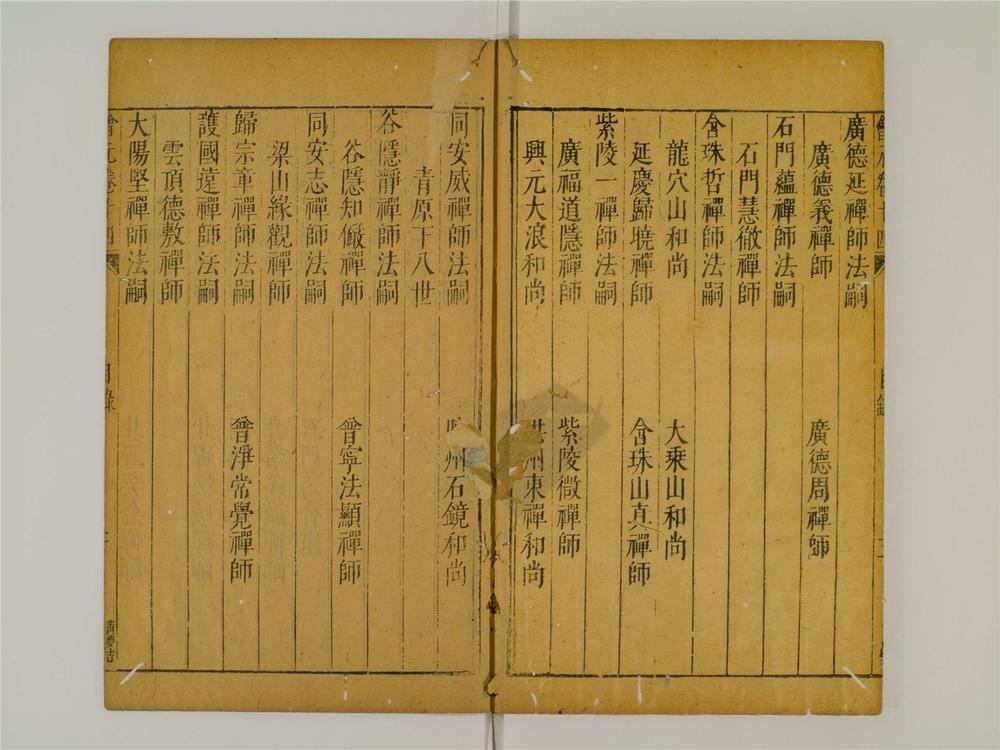 廣德延禪師法嗣
廣德義禪師 廣德周禪師
石門蘊禪師法嗣
石門慧徹禪師
含珠哲禪師法嗣
龍穴山和尚 大乘山和尚
延慶歸曉禪師 含珠山真禪師
紫陵一禪師法嗣
廣福道隱禪師 紫陵微禪師
興元大浪和尚 洪州東禪和尚
同安威禪師法嗣
州石鏡和尚
青原下八世
谷隱靜禪師法嗣
谷隱知儼禪師 普寧法顯禪師
同安志禪師法嗣
梁山緣觀禪師
歸宗章禪師法嗣
普淨常覺禪師
護國遠禪師法嗣
雲頂德敷禪師
大陽堅禪師法嗣
目錄
黃慶吉